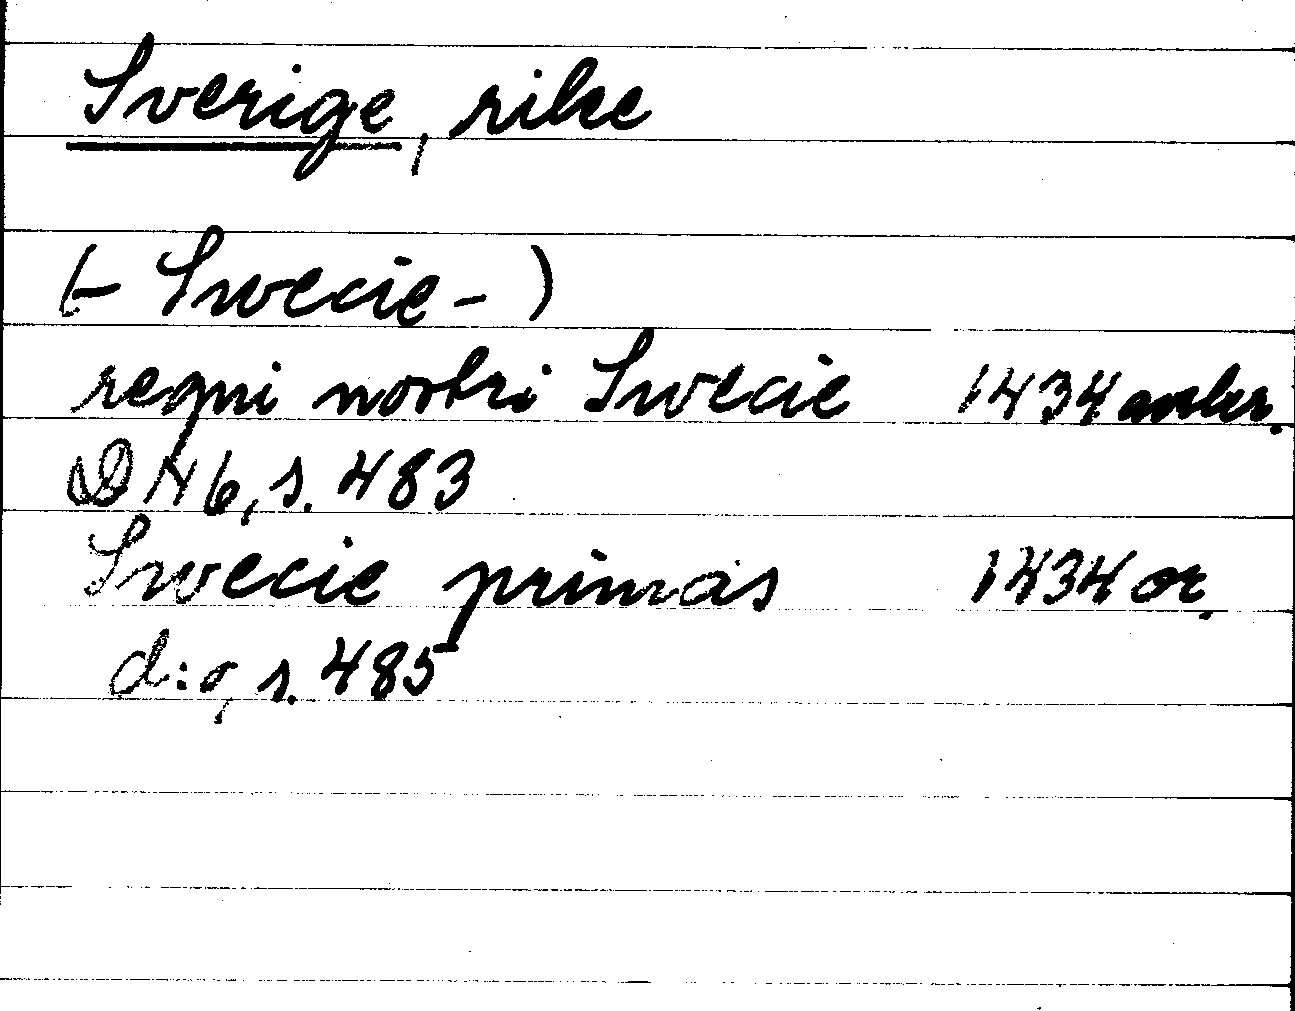 Sverige, rike
(- Swecie - )
regni nostri Swecie 1434 avskr.
DN 6, s. 483
Swecie primas 1434 or.
d:o, s. 485